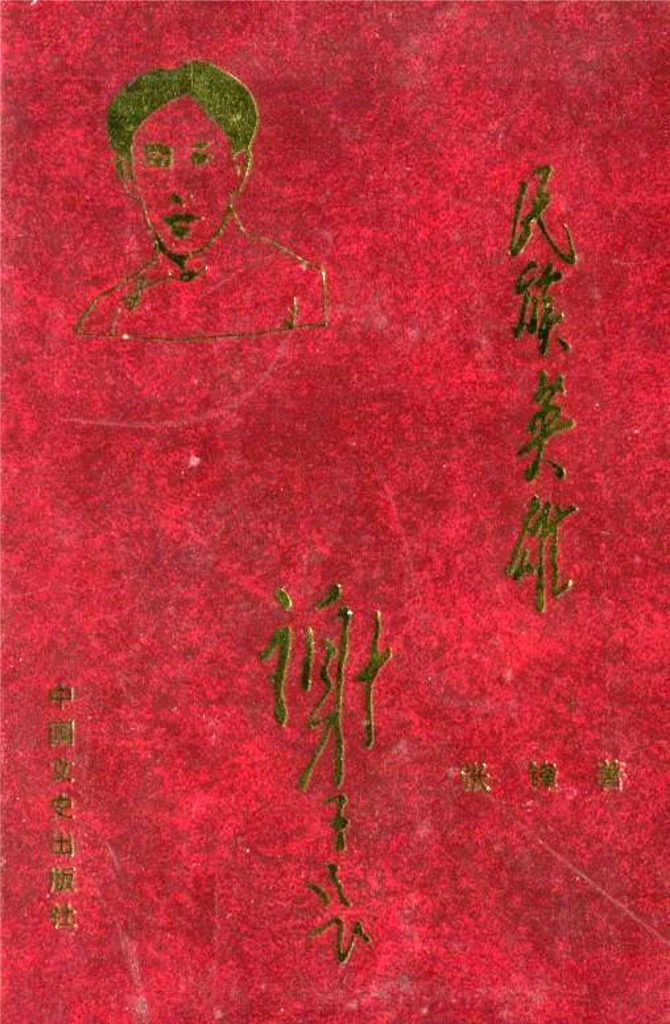 民族英雄
谢子长
张锋著
中国文史出版社